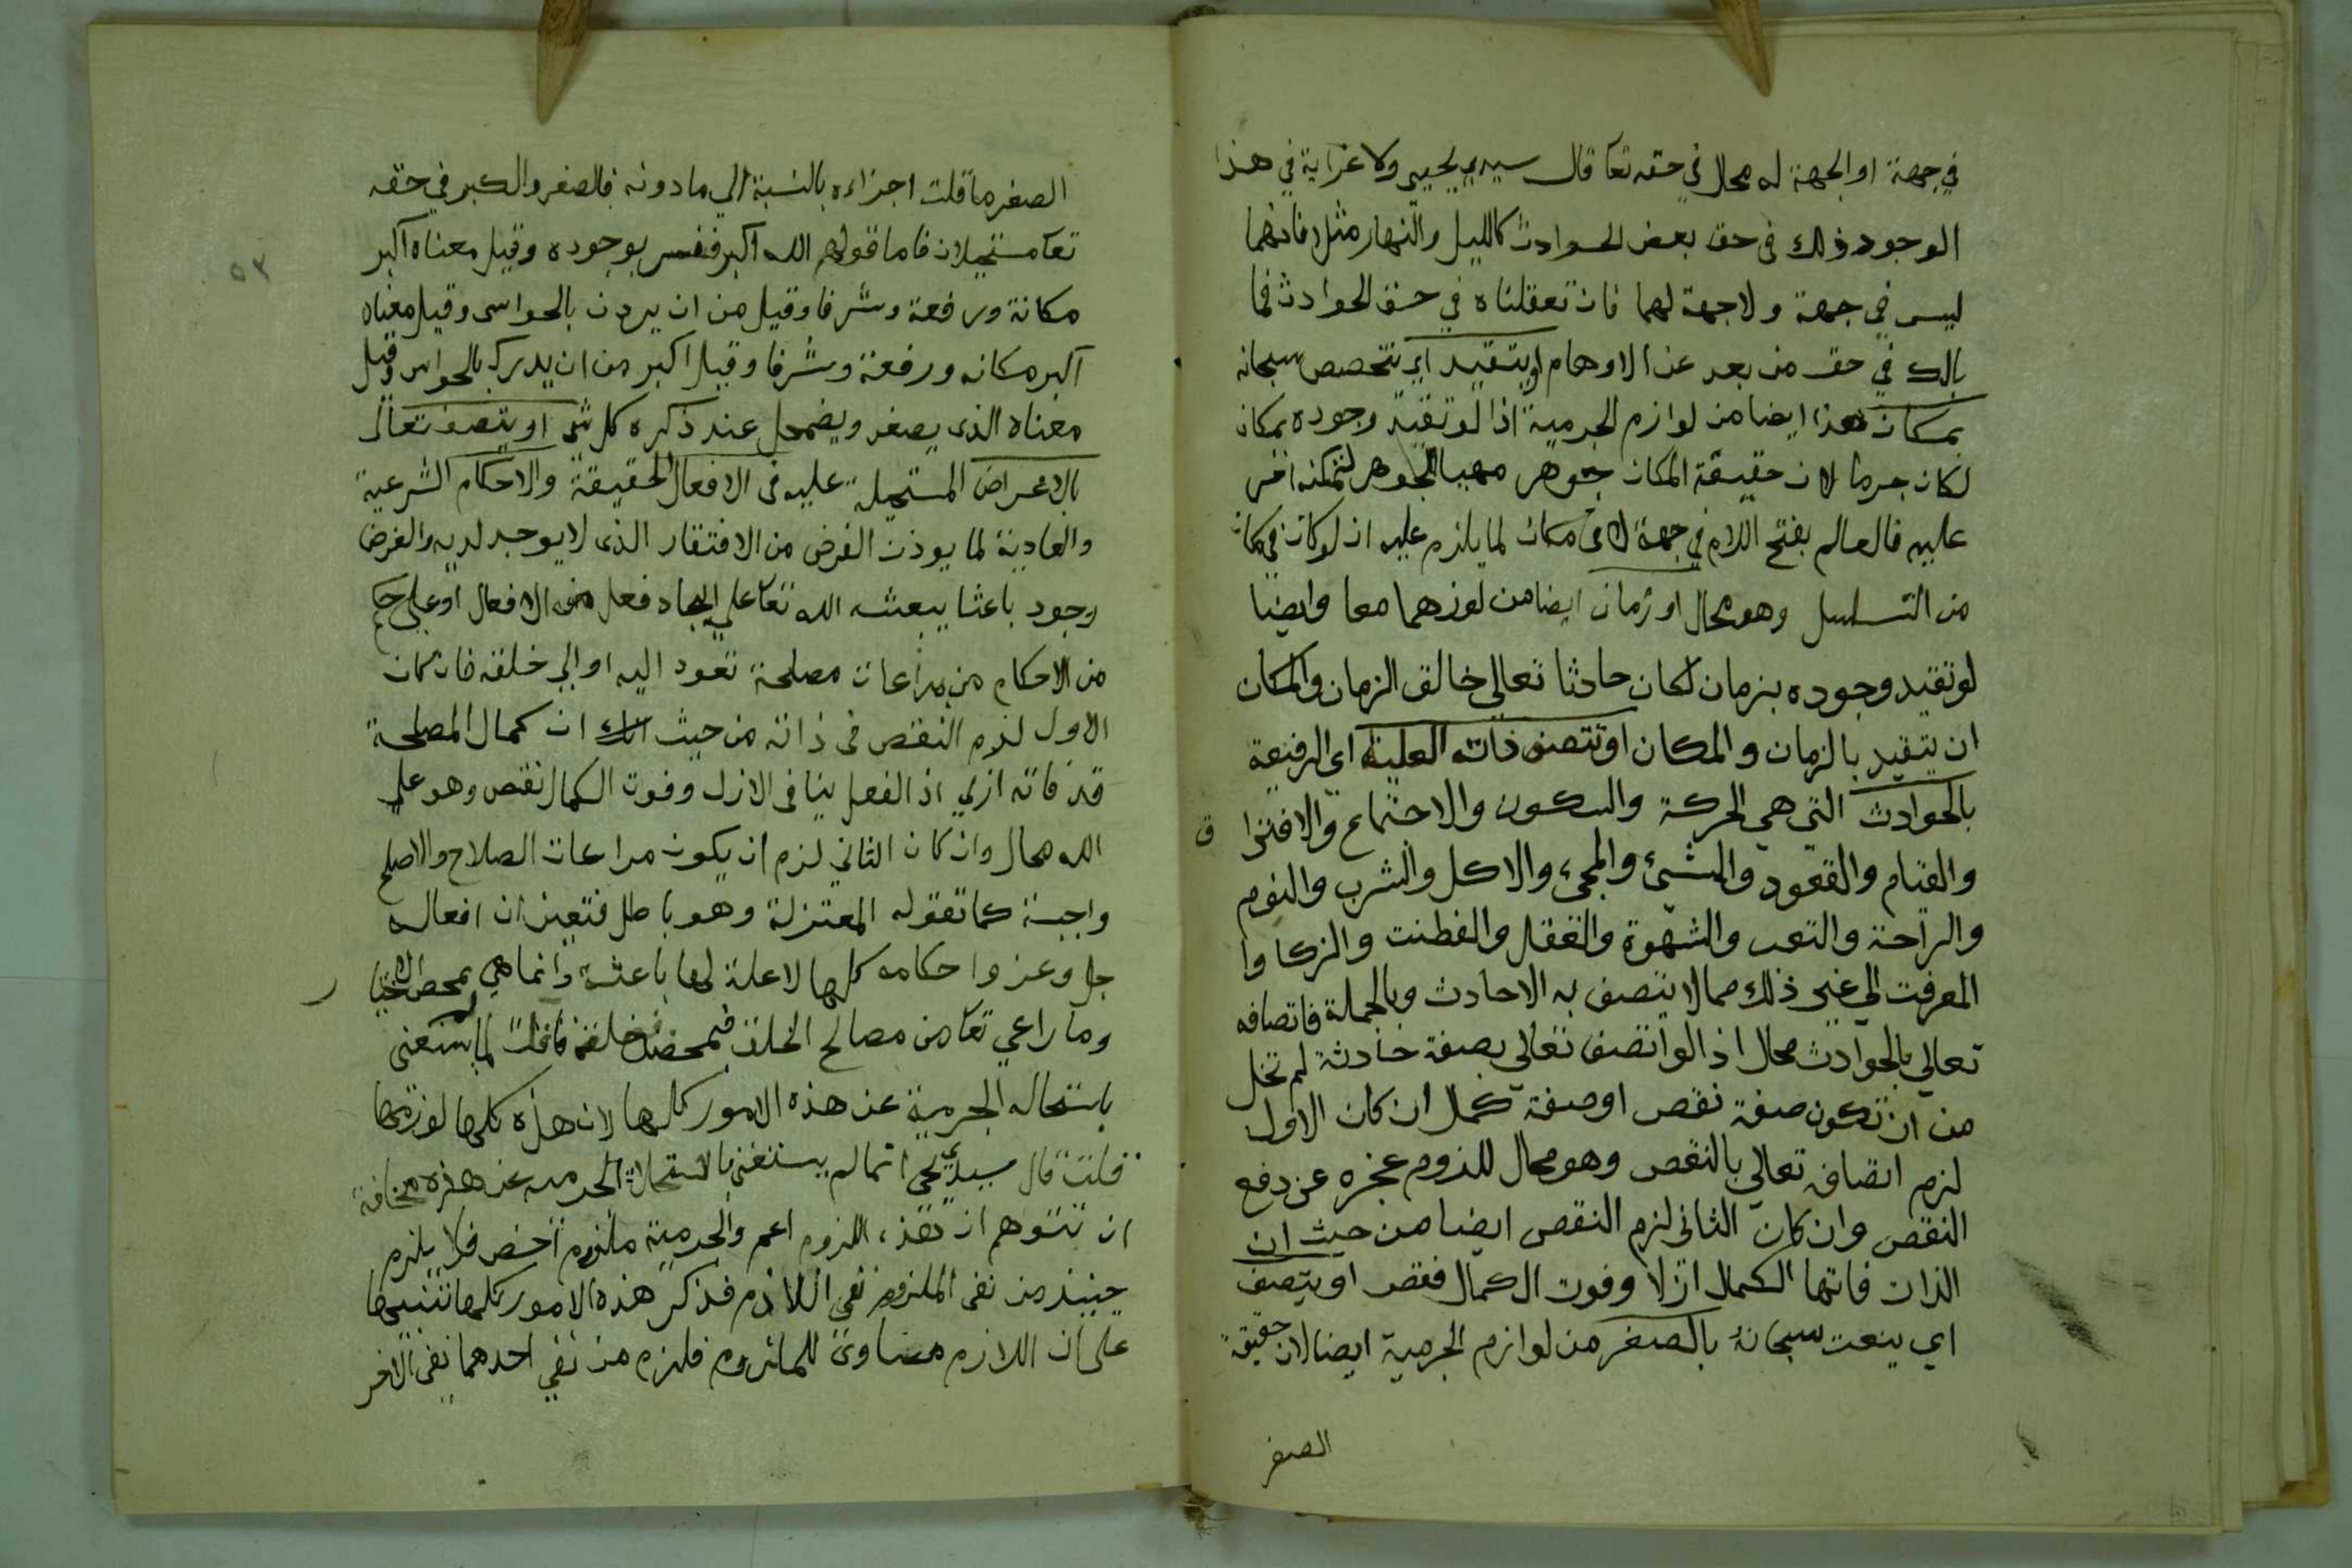 في جهة او الجهة له محال في حقه تعا قال سيدي يحيى ولا غرابة في هذا
الوجود ذلك في حق بعض الحوادث كالليل والنهار مثلا فانهما
ليس في جهة ولا جهة لهما فان تعقلناه في حق الحوادث فما
بالك في حق من بعد عن الاوهام او يتقيد اي يتخصص سبحانه
بمكان هذا ايضا من لوازم الجرمية اذ لو تقيد وجوده بمكان
لكان جرما لان حقيقة المكان جوهر الجوهر لتمكنه اخر
عليه فالعالم بفتح اللام في جهة لا في مكان لما يلزم عليه ان لو كان في مكان
من التسلسل وهو محال او زمان ايضا من لوزهما معا وايضا
لو تقيد وجوده بزمان لكان حادثا تعالى خالق الزمان والمكان
ان يتقيد بالزمان والمكان او تتصف ذاته العلية اي الرفيعة
بالحوادث التي هي الحركة والسكون والاجتماع والافترا ق
والقيام والقعود والمشئ والمجيء والاكل والشرب والنوم
والراحة والتعب والشهوة والعقل والفطنت والزكا وا
المعرفت الي غير ذلك مما لا يتصف به الا حادث وبالجملة فاتصافه
تعالي بالحوادث محال اذ لو اتصف تعالي بصفة حادثة لم تخل
من ان تكون صفة نقص او صفة كمل ان كان الاول
لزم اتصافه تعالي بالنقص وهو محال للزوم عجزه عن دفع
النقص وان كان الثاني لزم النقص ايضا من حيث ان
الذات فاتها الكمال ازلا وفوت الكمال نقص او يتصف
اي ينعت سبحانه بالصغر من لوازم الجرمية ايضا لان حقيقة
الصغر
٥٣
الصغر ما قلت اجزاءه بالنسبة الي ما دونه فالصغر والكبر في حقه
تعا مستحيلان فاما قولهم الله اكبر ففسر بوجوده وقيل معناه اكبر
مكانة ورفعة وشرفا وقيل من ان يدرك بالحواس وقيل معناه
اكبر مكانه ورفعة وشرفا وقيل اكبر من ان يدرك بالحواس وقيل
معناه الذي يصغر ويضمحل عند ذكره كل شئ او يتصف تعالى
بالاغراض المستحيلة عليه في الافعال الحقيقة والاحكام الشرعية
والعادية لما يوذن الغرض من الافتقار الذى لا يوجد لديه والغرض
وجود باعثا يبعثه الله تعا علي ايجاد فعل من الافعال او علي حكم
من الاحكام من مراعات مصلحة تعود اليه او الي خلقه فان كان
الاول لزم النقص في ذاته من حيث ان كمال المصلحة
قد فاته ازلي اذ الفعل ينافى الازل وفوت الكمال نقص وهو علي
الله محال وان كان الثاني لزم ان يكون مراعات الصلاح والاصلح
واجبة كما تقوله المعتزلة وهو باطل فتعين ان افعاله
جل وعز واحكامه كلها لا علة لها باعثة وانما هي بمحض الاختيا ر
وما راعي تعا من مصالح الخلق فبمحض فضله فان قلت لم لم يستغنى
باستحاله الجرمية عن هذه الامور كلها لان هذه كلها لوازمها
قلت قال سيدي يحيى انما لم يستغنى بالاستحالة الجرمية عن هذه مخافة
ان تتوهم ان هذه اللزوم اعم والجرمية ملزوم اخص فلا يلزم
حينيذ من نفي الملزوم نفي اللازم فذكر هذه الامور كلها تنبيها
على ان اللازم مساوي للملزوم فلزم من نفي احدهما نفي الاخر